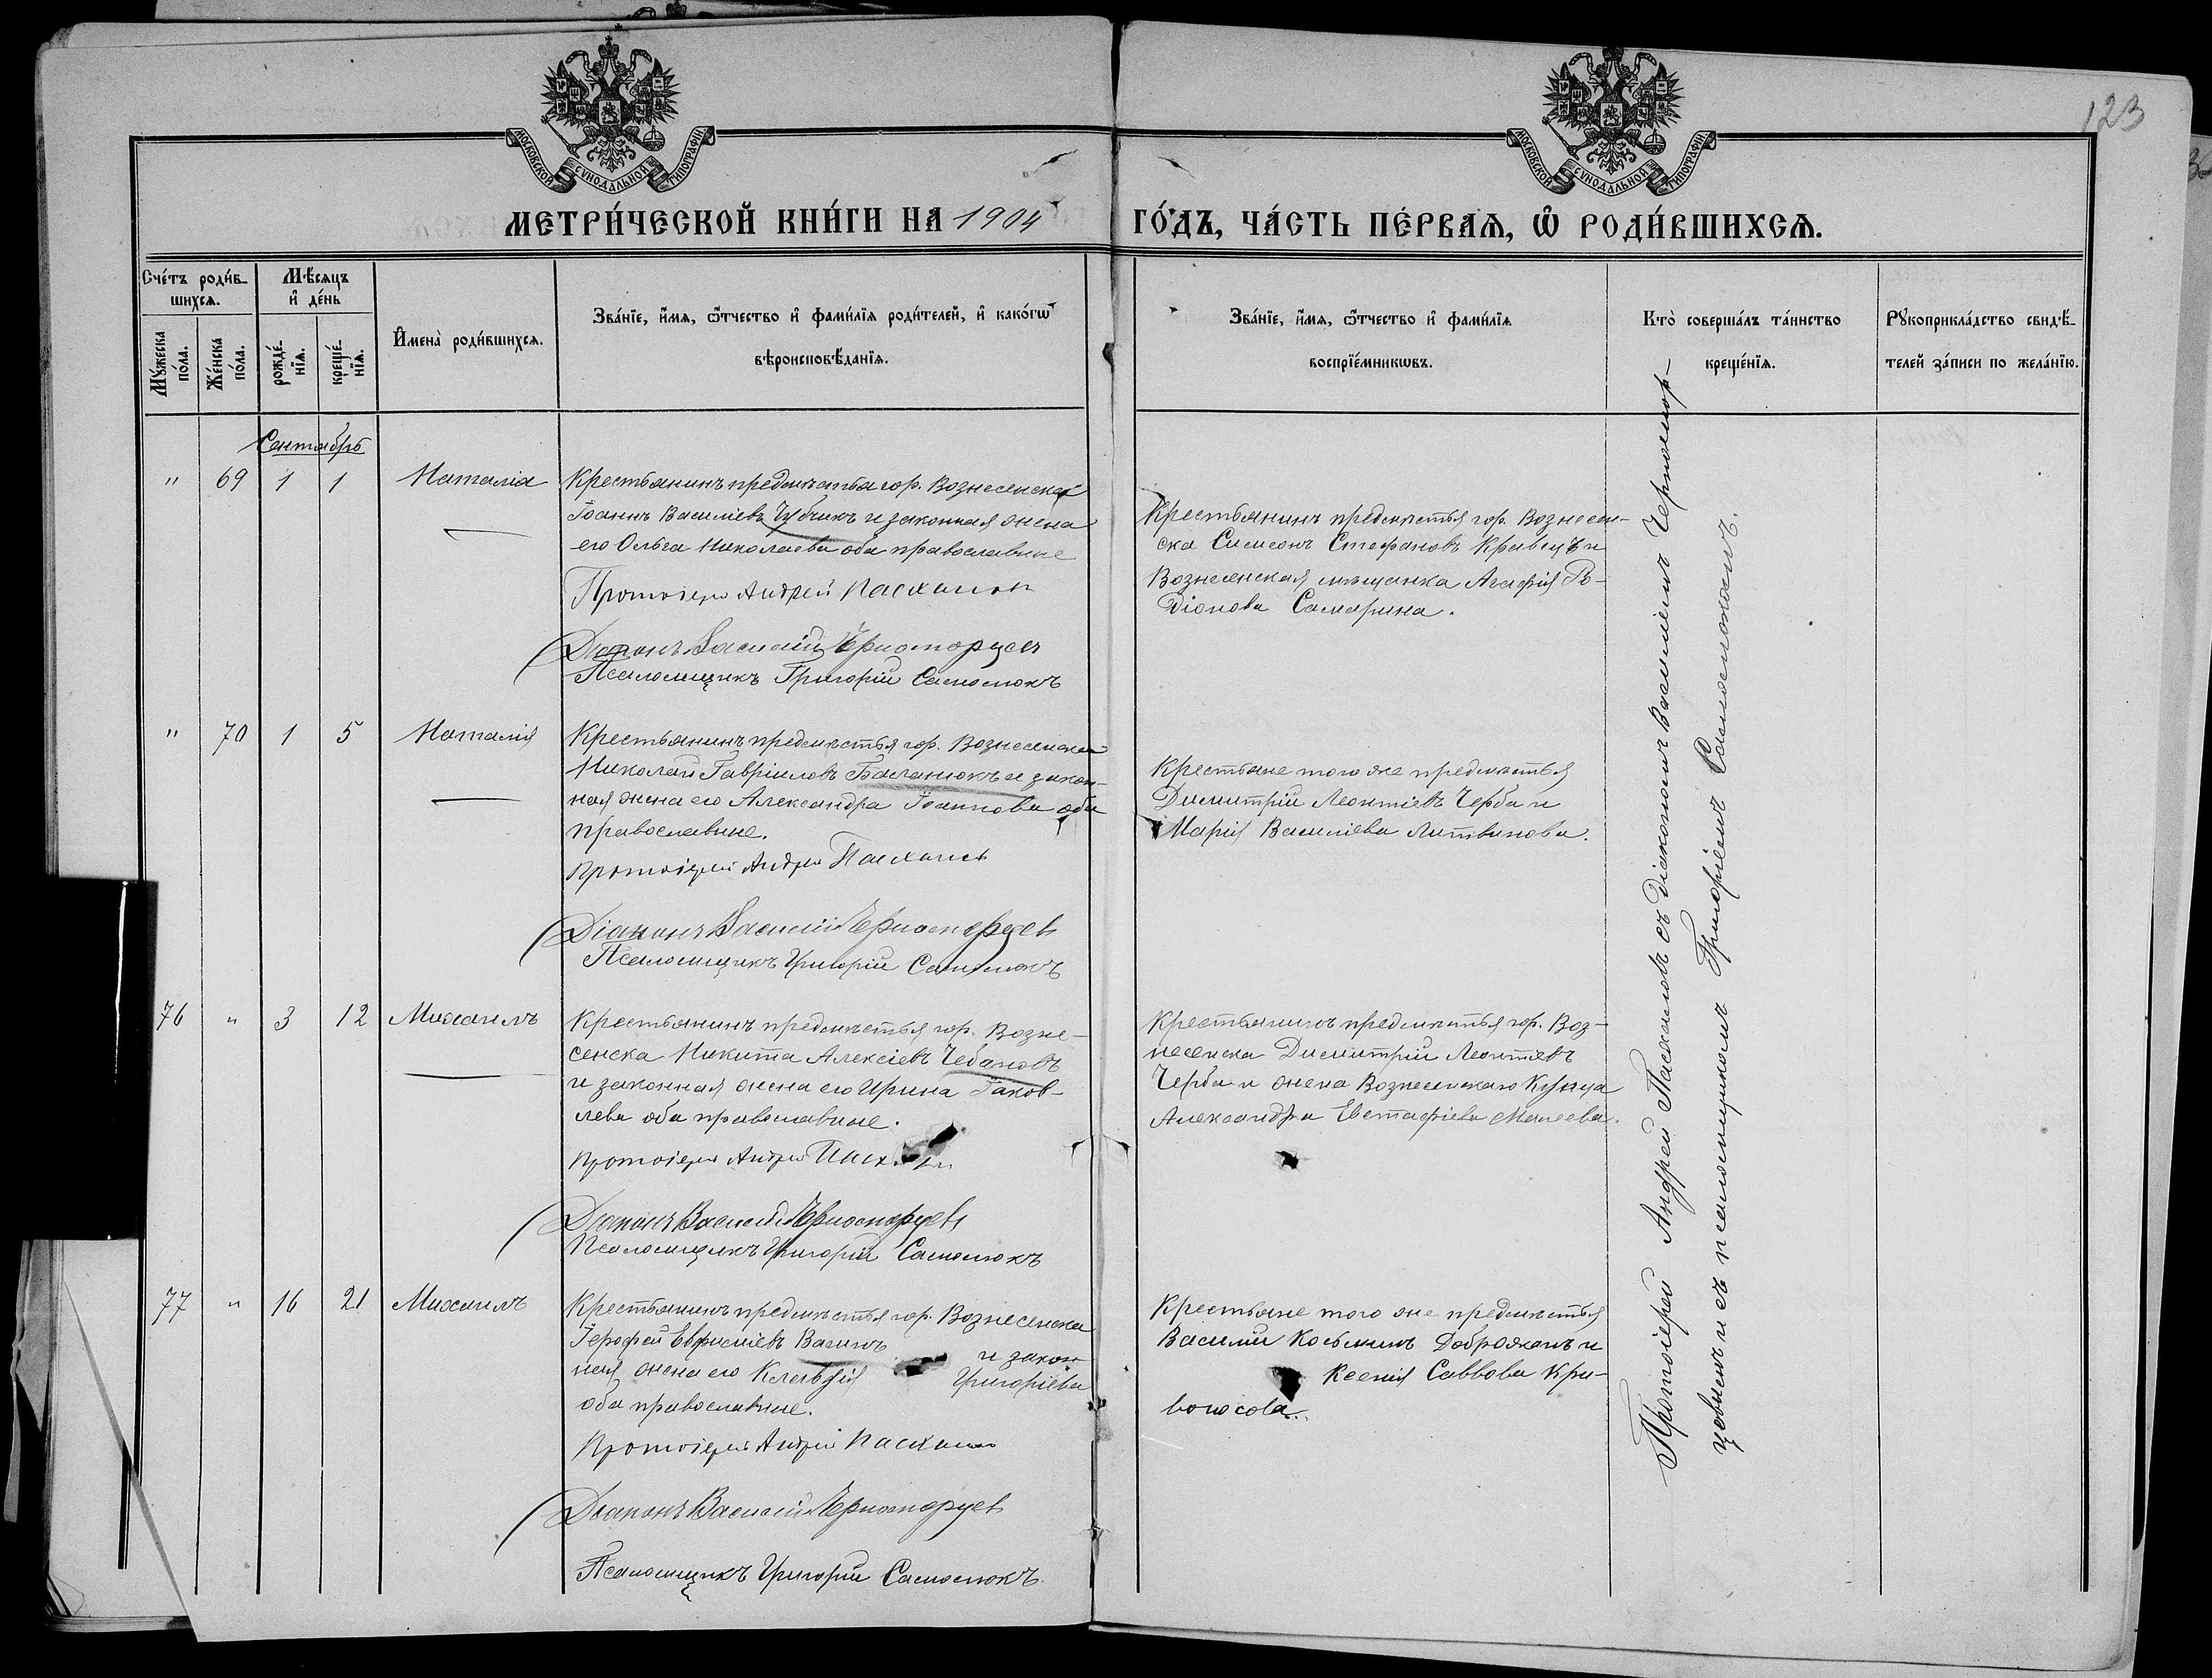 123
МОСКОВСКОЙ СѴНОДАЛЬНОЙ ТИПОГРАФІИ
МОСКОВСКОЙ СѴНОДАЛЬНОЙ ТИПОГРАФІИ
МЕТРИ́ЧЕСКОЙ КНИ́ГИ НА 1904 ГО́ДЪ, ЧА́СТЬ ПЕ́РВАѦ, Ѡ҆ РОДИ́ВШИХСѦ.
Сче́тъ роди́в-
шихсѧ.
Мꙋ́жеска по́ла.
Же́нска по́ла.
Мѣ́сѧцъ
и҆ де́нь
рожде́-
нїѧ.
креще́-
нїѧ.
И҆мена̀ роди́вшихсѧ.
Зва́нїе, и҆́мѧ, ѻ҆́тчество и҆ фами́лїѧ роди́телей, и҆ како́гѡ
вѣроисповѣ́данїѧ.
Зва́нїе, и҆́мѧ, ѻ҆́тчество и҆ фами́лїѧ
воспрїе́мникѡвъ.
Кто̀ соверша́лъ та́инство
креще́нїѧ.
Рꙋкоприкла́дство свидѣ́-
телей за́писи по жела́нїю.
Сентябрь
" 69 1 1 Наталія
Крестьянинъ предмѣстья гор. Вознесенска
Іоаннъ Василіевъ Чубчикъ и законная жена
его Ольга Николаева оба православные
Протоіерей Андрей Пасхаловъ
Діаконъ Василій Черноморцевъ
Псаломщикъ Григорій Самолюкъ
Крестьянинъ предмѣстья гор. Вознесен-
ска Симеонъ Стефановъ Кравецъ и
Вознесенская мѣщанка Агафія Ро-
діонова Самарина.
" 70 1 5 Наталія
Крестьянинъ предмѣстья гор. Вознесенска
Николай Гавріиловъ Баланюкъ и закон-
ная жена его Александра Іоаннова оба
православные.
Протоіерей Андрей Пасхаловъ
Діаконъ Василій Черноморцевъ
Псаломщикъ Григорій Самолюкъ
Крестьяне того же предмѣстья
Димитрій Леонтіевъ Черба и
Марія Василіева Литвинова.
76 " 3 12 Михаилъ
Крестьянинъ предмѣстья гор. Возне-
сенска Никита Алексіевъ Чебановъ
и законная жена его Ирина Іаков-
лева оба православные.
Протоіерей Андрей
Діаконъ Василій Черноморцевъ
Псаломщикъ Григорій Самолюкъ
Крестьянинъ предмѣстья гор. Воз-
несенска Димитрій Леонтіевъ
Черба и жена Вознесенскаго Купца
Александра Евстафіева Малеева.
77 " 16 21 Михаилъ
Крестьянинъ предмѣстья гор. Вознесенска
Іерофей Евфиміевъ Вагинъ и закон
ная жена его Григоріева
оба православные.
Протоіерей Андрей Пасхаловъ
Діаконъ Василій Черноморцевъ
Псаломщикъ Григорій Самолюкъ.
Крестьяне того же предмѣстья
Василій Косьминъ Доброжанъ и
Ксенія Саввова Кри-
воносова.
Протоіерей Андрей Пасхаловъ съ діакономъ Василіемъ Черномор-
цовымъ и съ псаломщикомъ Григоріемъ Самолюкомъ.